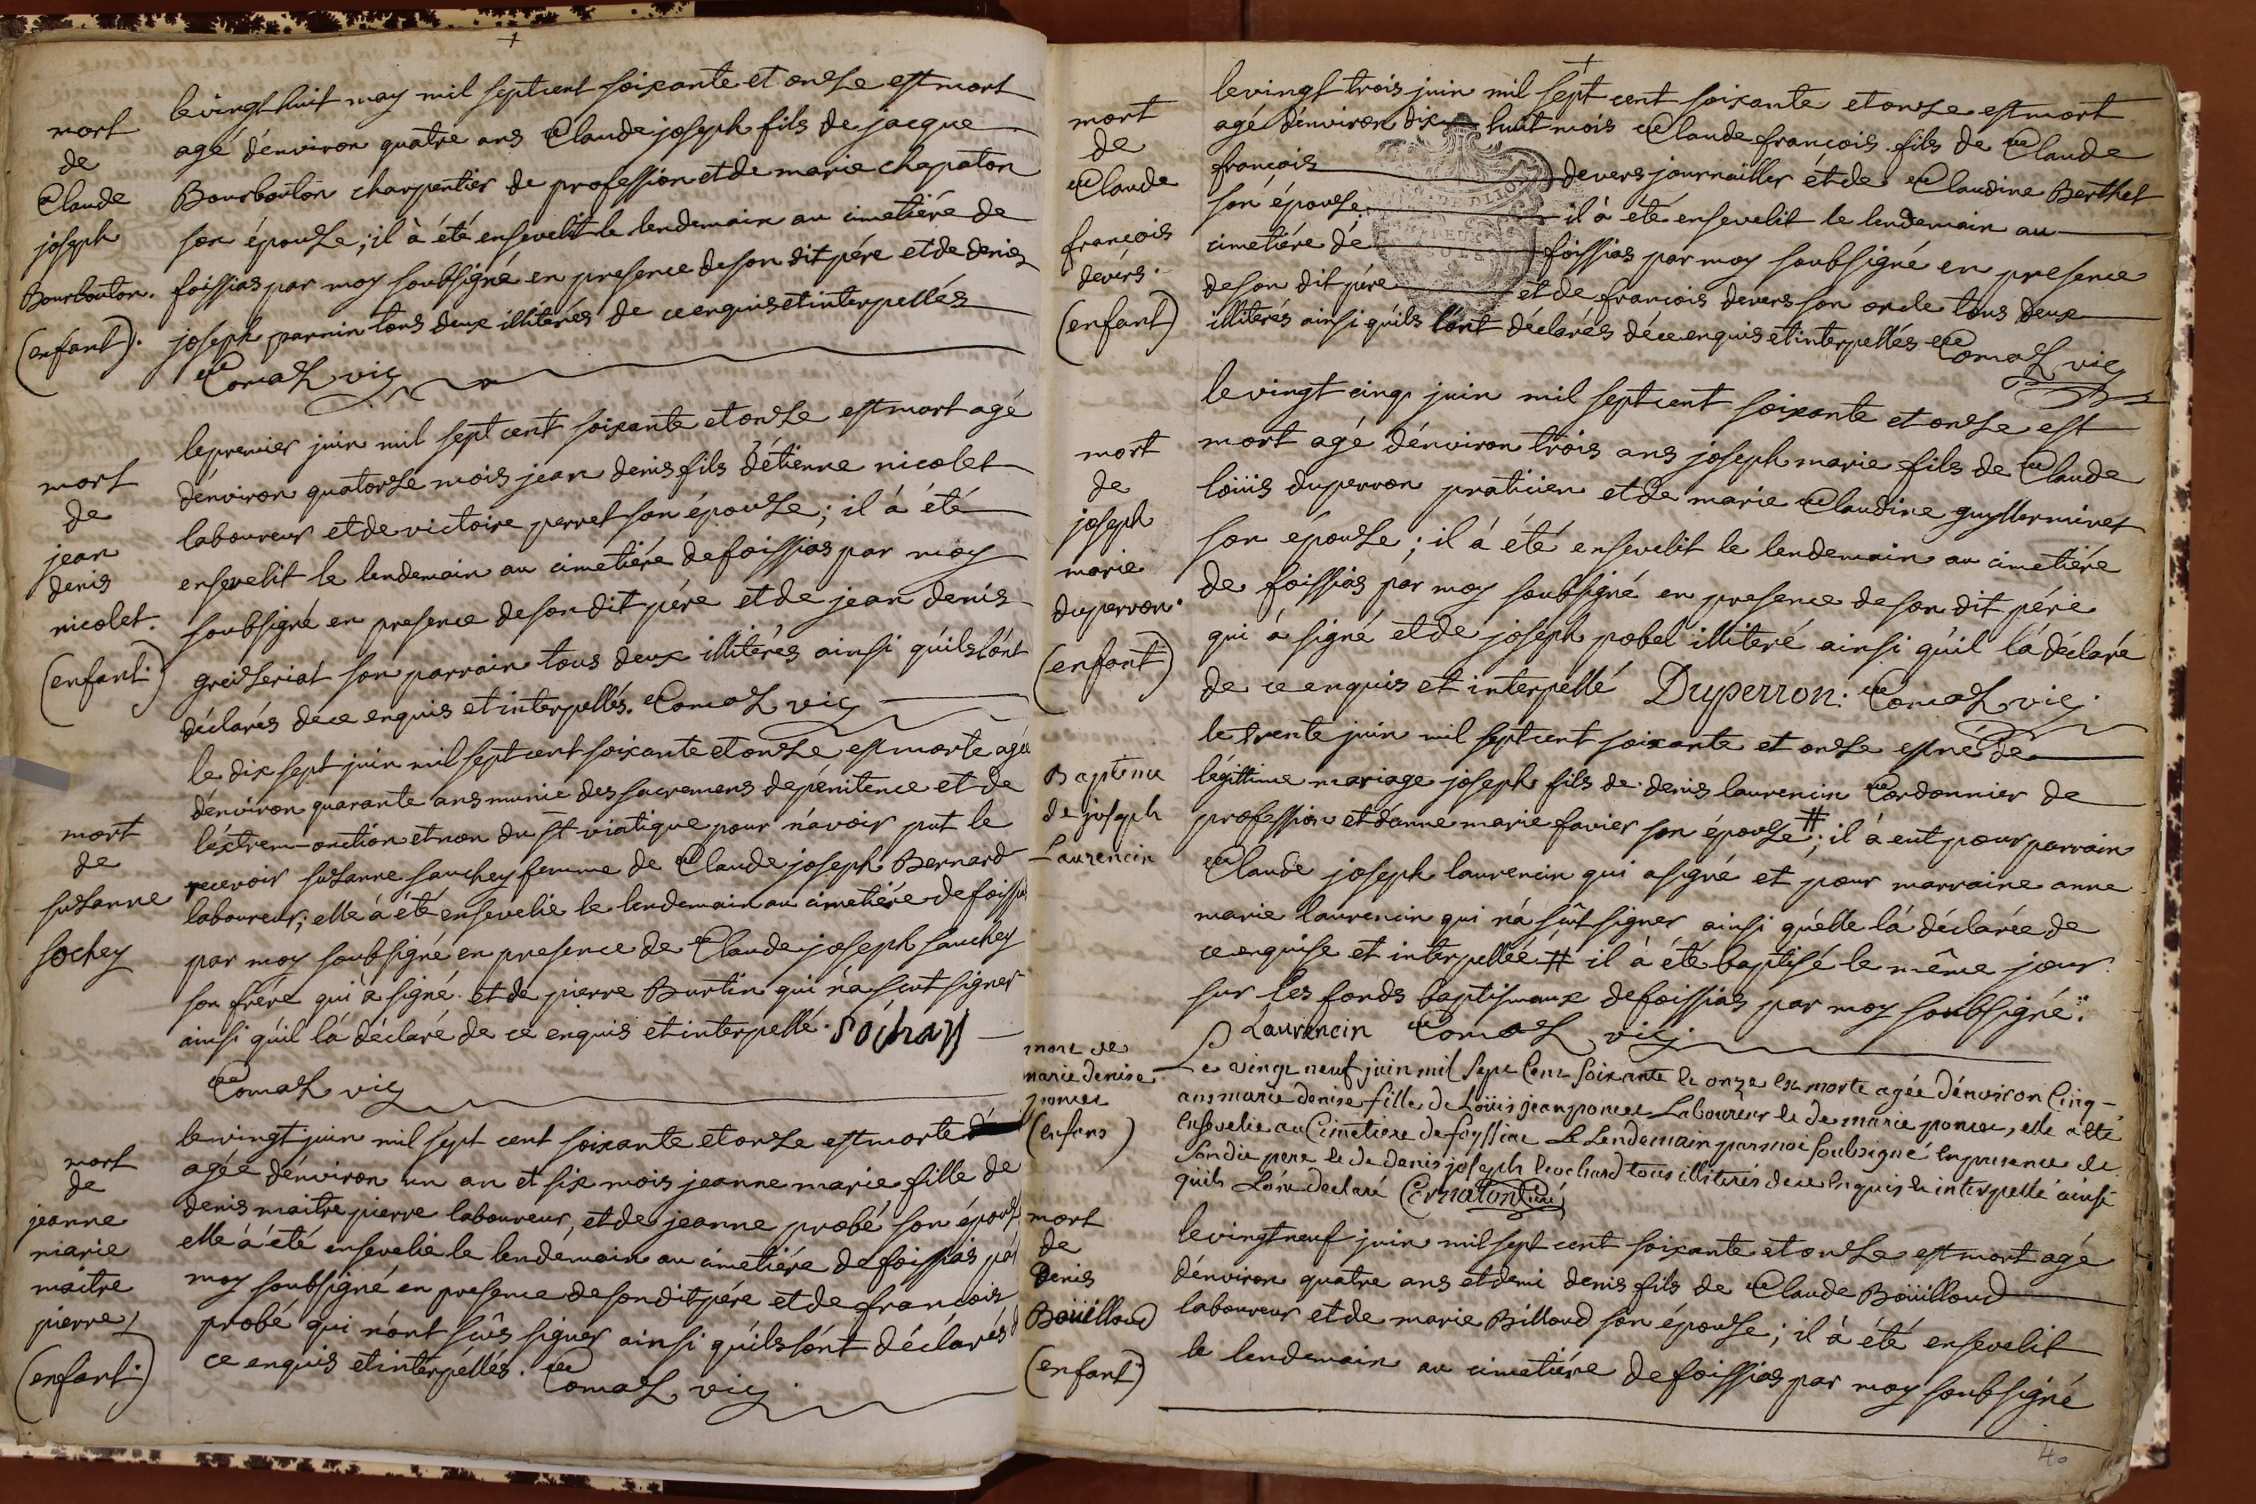 mort
de
Claude
joseph
Bourbouton.
(enfant).
le vingt huit may mil sept cent soixante et onze est mort
agé d'environ quatre ans Claude joseph fils de jacque
Bourbouton charpentier de profession et de marie chapaton
son épouse; il à été ensevelit le lendemain au cimetiére de
foissias par moy soubsigné en presence de son dit pére et de denis
joseph parnin tous deux illitérés de ce enquis et interpellés
Comaz vic
mort
de
jean
denis
nicolet.
(enfant.)
le premier juin mil sept cent soixante et onze est mort agé
d'environ quatorze mois jean denis fils d'étienne nicolet
laboureur et de victoire perret son épouse; il à été
ensevelit le lendemain au cimetiére de foissias par moy
soubsigné en presence de son dit pére et de jean denis
greizeriat son parrain tous deux illitérés ainsi qu'ils l'ónt
déclarés de ce enquis et interpellés. Comaz vic
mort
de
suzanne
sochey
le dix sept juin mil sept cent soixante et onze est morte agée
d'environ quarante ans munie des sacremens de pénitence et de
l'éxtrem-onction et non du st viatique pour n'avoir put le
recevoir suzanne sauchey femme de Claude joseph Bernard
laboureur; elle à été ensevelie le lendemain au cimetiére de foissias
par moy soubsigné en presence de Claude joseph sauchey
son frére qui à signé. et de pierre Burtin qui n'à scut signer
ainsi qu'il l'à déclaré de ce enquis et interpellé. Sóchay
Comaz vic
mort
de
jeanne
marie
maitre
pierre
(enfant.)
le vingt juin mil sept cent soixante et onze est morte
agée d'environ un an et six mois jeanne marie fille de
denis maitrepierre laboureur, et de jeanne probé son épouse
elle à été ensevelie le lendemain au cimetiére de foissias par
moy soubsigné en presence de son dit pére et de francois
probé qui n'ónt sûs signer ainsi qu'ils l'ónt déclarés d
ce enquis et interpéllés. Comaz vic.
mort
de
Claude
françois
devers.
(enfant)
le vingt trois juin mil sept cent soixante et onze est mort
agé d'environ dix huit mois Claude francois fils de Claude
francois devers journailler ét de Claudine Berthet
són épouse il à été ensevelit le lendemain au
cimetiére de foissias par moy soubsigné en presence
de son dit pére et de francois devers son oncle tous deux
illitérés ainsi qu'ils l'ónt déclarés de ce enquis et interpellés Comaz vic
mort
de
joseph
marie
duperron.
(enfant)
le vingt cinq juin mil sept cent soixante et onze est
mort agé d'environ trois ans joseph marie fils de Claude
loüis duperron praticien et de marie Claudine guillerminet
son épouse; il à été ensevelit le lendemain au cimetiére
de foissias par moy soubsigné en presence de son dit pére
qui à signé et de joseph pobel illiteré ainsi qu'il l'à déclaré
de ce enquis et interpellé Duperron. Comaz vic.
Baptême
de joseph
Laurencin
le trente juin mil sept cent soixante et onze est né de
légittime mariage joseph fils de denis laurencin Cordonnier de
profession et d'anne marie favier son épouse #; il à eut pour parrain
Claude joseph laurencin qui a signé et pour marraine anne
marie laurencin qui n'à sçût signer ainsi qu'elle l'à déclarée de
ce enquise et interpellée. # il à été baptisé le même jour
sur les fonds baptismaux de foissias par moy soubsigné.
Laurencin Comaz vic
mort de
marie denise
poncet
(enfans)
Le vingt neuf juin mil sept Cent soixante et onze est morte agée d'environ Cinq
ans marie denise fille de Loüis jean poncet Laboureur et de marie poncet, elle a été
Ensevelie au Cimetiere de foyssiat Le Lendemain par moi soubsigné En presence de
son dit pere et de denis joseph brochard tous illiterés de ce Enquis et interpellé ainsi
qu'ils L'ónt declaré Cernaton curé
mort
de
Denis
Boüilloud
(enfant)
le vingt neuf juin mil sept cent soixante et onze est mort agé
d'environ quatre ans et demi denis fils de Claude Boüilloud
laboureur et de marie Billoud son épouse; il à été ensevelit
le lendemain au cimetiére de foissias par moy soubsigné
40